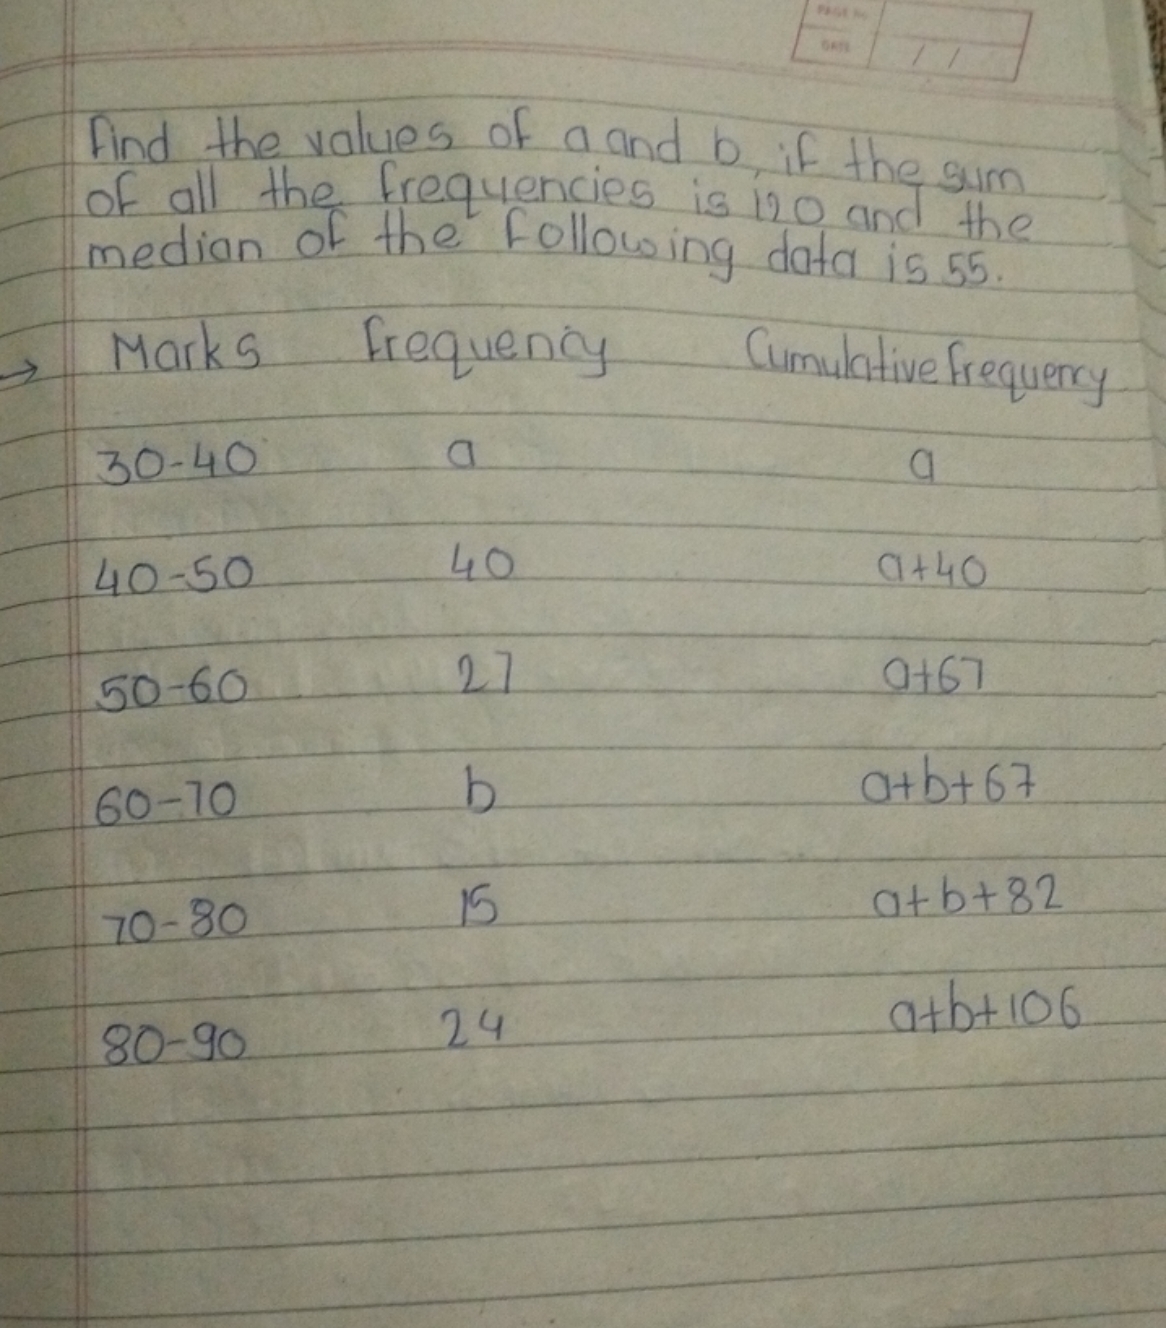 PAGE No.
DATE / /
find the values of a and b, if the sum
of all the frequencies is 120 and the
median of the following data is 55.
→ Marks frequency Cumulative frequency
30-40 a a
40-50 40 a+40
50-60 27 a+67
60-70 b a+b+67
70-80 15 a+b+82
80-90 24 a+b+106